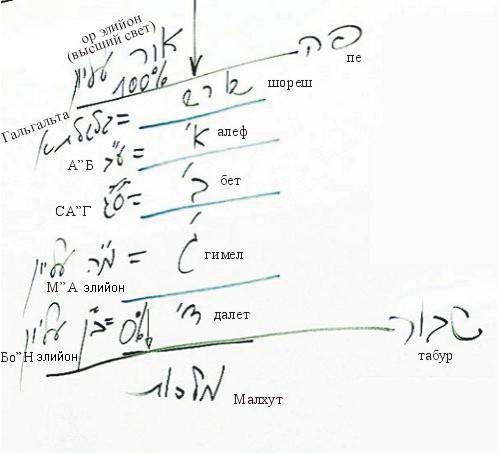 ор элийон
(высший свет)
אור עליון
100%
פה
пе
שורש шореш
Гальгальта גלגלתא =
א' алеф
А"Б ע"ב =
ב' бет
СА"Г ס"ג =
ג' гимел
מ"ה עליון =
М"А элийон
ד' далет
ב"ן עליון = 0%
Бо"Н элийон
טבור
табур
מלכות Малхут